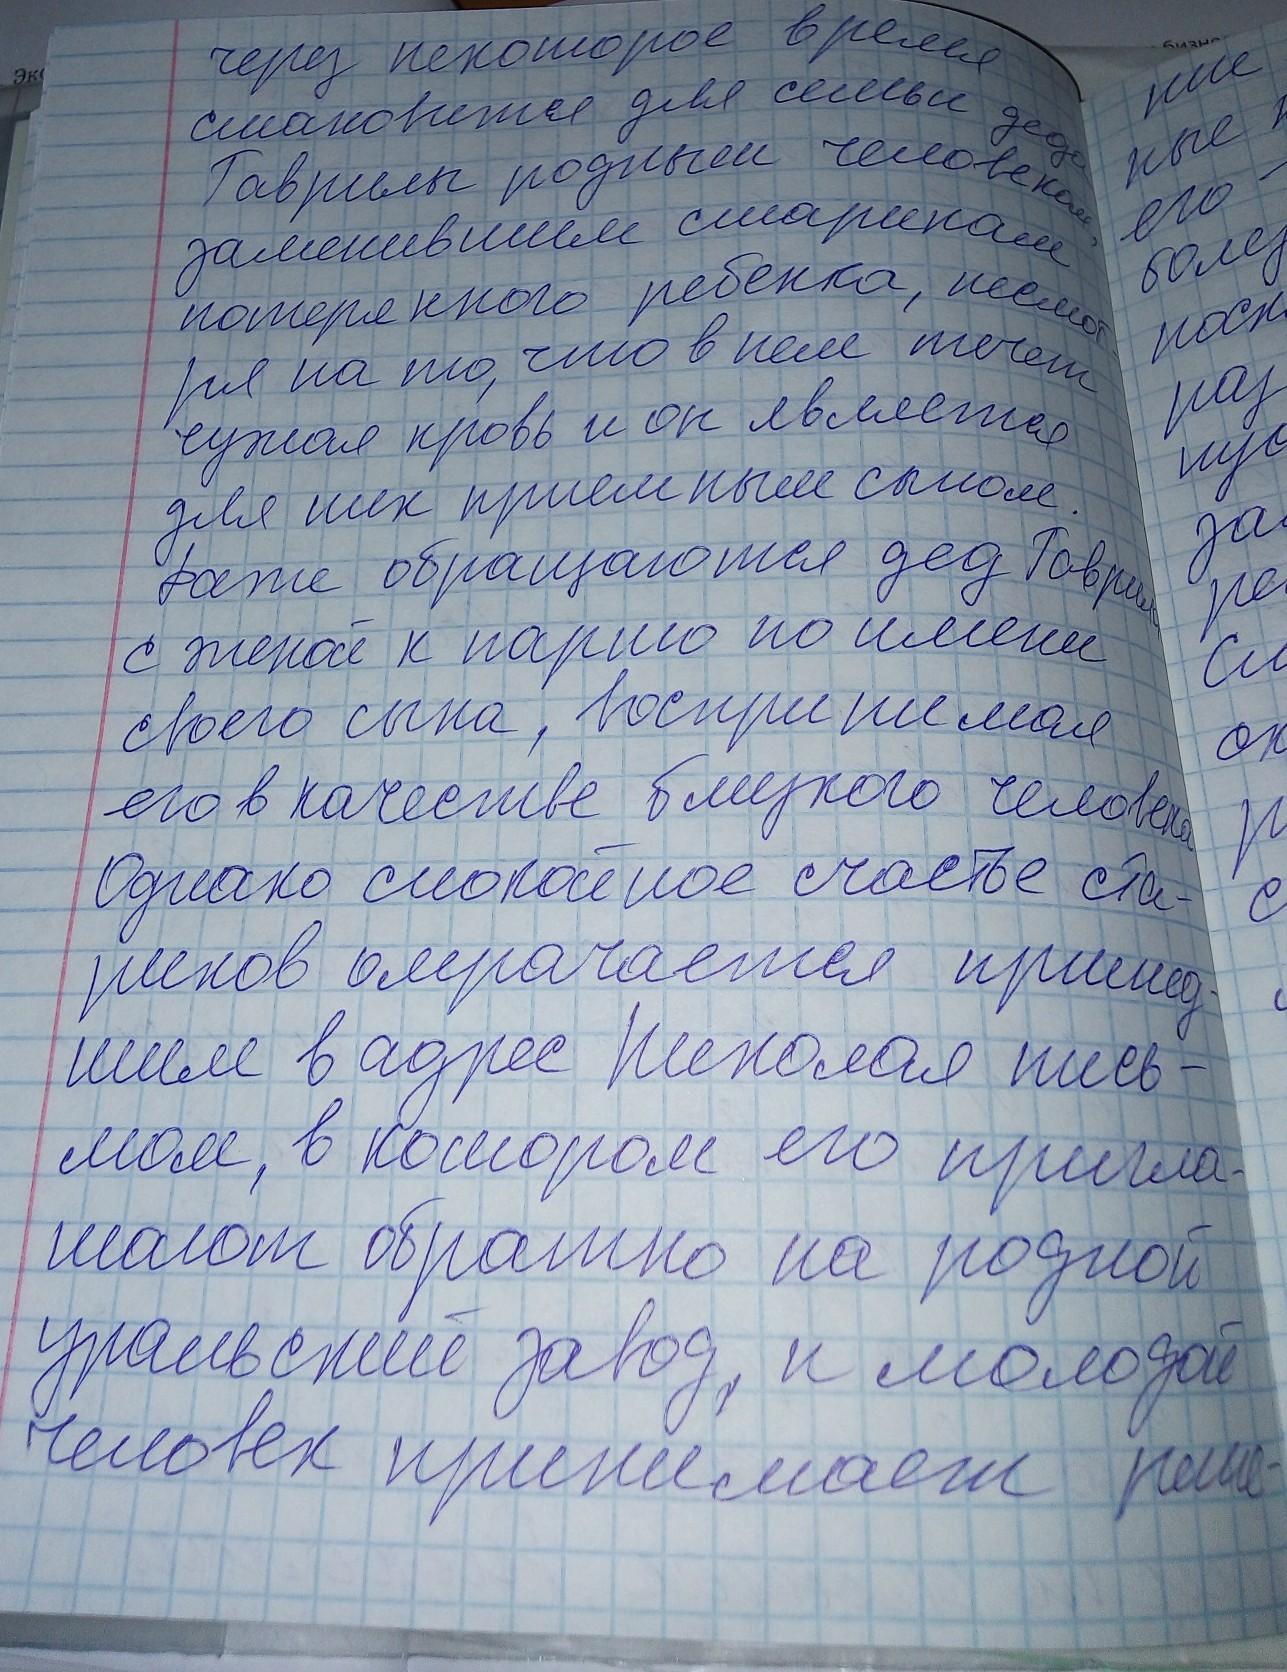 через некоторое время
становится для семьи деда
Гаврилы родным человеком,
заменившим старикам
потерянного ребенка, несмот-
ря на то, что в нем течет
чужая кровь и он является
для них приемным сыном.
Даже обращаются дед Гаврила
с женой к парню по имени
своего сына, воспринимая
его в качестве близкого человека
Однако спокойное счастье ста-
риков омрачается пришед-
шим в адрес Николая пись-
мом, в котором его пригла-
шают обратно на родной
уральский завод, и молодой
человек принимает реше-
ние
ные
его
болез
поск
раз
пус
за
ре
Сл
ок
р
с
Эко
бизне